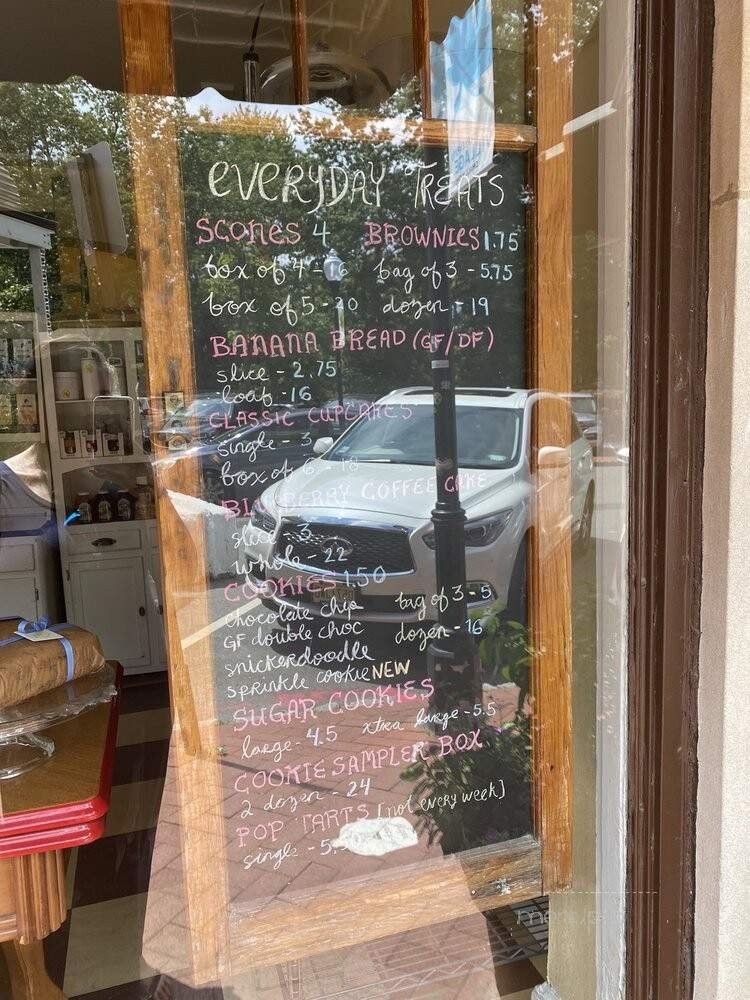 EVERYDAY TREATS
SCONES 4 BROWNIES 1.75
box of 4 - 16 bag of 3 - 5.75
box of 5 - 20 dozen - 19
BANANA BREAD (GF/DF)
slice - 2.75
loaf - 16
CLASSIC CUPCAKES
single - 3
box of 6 - 18
BLUEBERRY COFFEE CAKE
slice - 3
whole - 22
COOKIES 1.50
chocolate chip bag of 3 - 5
GF double choc dozen - 16
snickerdoodle
sprinkle cookie NEW
SUGAR COOKIES
large - 4.5 xtra large - 5.5
COOKIE SAMPLER BOX
2 dozen - 24
POP TARTS [not every week]
single -